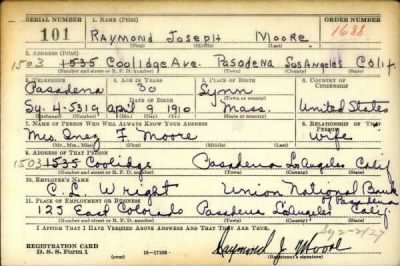 SERIAL NUMBER 1. NAME (Print) ORDER NUMBER
101 RAYMOND JOSEPH MOORE 1688
(First) (Middle) (Last)
2. ADDRESS (Print)
1503 1535 Coolidge Ave. Pasadena Los Angeles Calif.
(Number and street or R. F. D. number) (Town) (County) (State)
3. TELEPHONE 4. AGE IN YEARS 5. PLACE OF BIRTH 6. COUNTRY OF CITIZENSHIP
Pasadena 30 Lynn
DATE OF BIRTH
Sy. 4-5319 April 9 1910 Mass. United States
(Exchange) (Number) (Mo.) (Day) (Yr.) (State or country)
7. NAME OF PERSON WHO WILL ALWAYS KNOW YOUR ADDRESS 8. RELATIONSHIP OF THAT PERSON
Mrs. Inez F. Moore Wife
(Mr., Mrs., Miss) (First) (Middle) (Last)
9. ADDRESS OF THAT PERSON
1503 1535 Coolidge Pasadena Los Angeles Calif
(Number and street or R. F. D. number) (Town) (County) (State)
10. EMPLOYER'S NAME
C. L. Wright Union National Bank
of Pasadena
11. PLACE OF EMPLOYMENT OR BUSINESS
125 East Colorado Pasadena Los Angeles Calif.
(Number and street or R. F. D. number) (Town) (County) (State)
I AFFIRM THAT I HAVE VERIFIED ABOVE ANSWERS AND THAT THEY ARE TRUE.
Sy 2-2127
REGISTRATION CARD
D. S. S. Form 1 16-17105 Raymond J. Moore